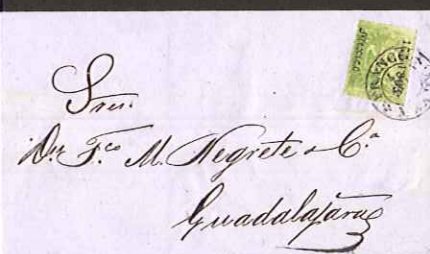 Sres.
Dn. F.co M. Negrete & C.a
Guadalajara